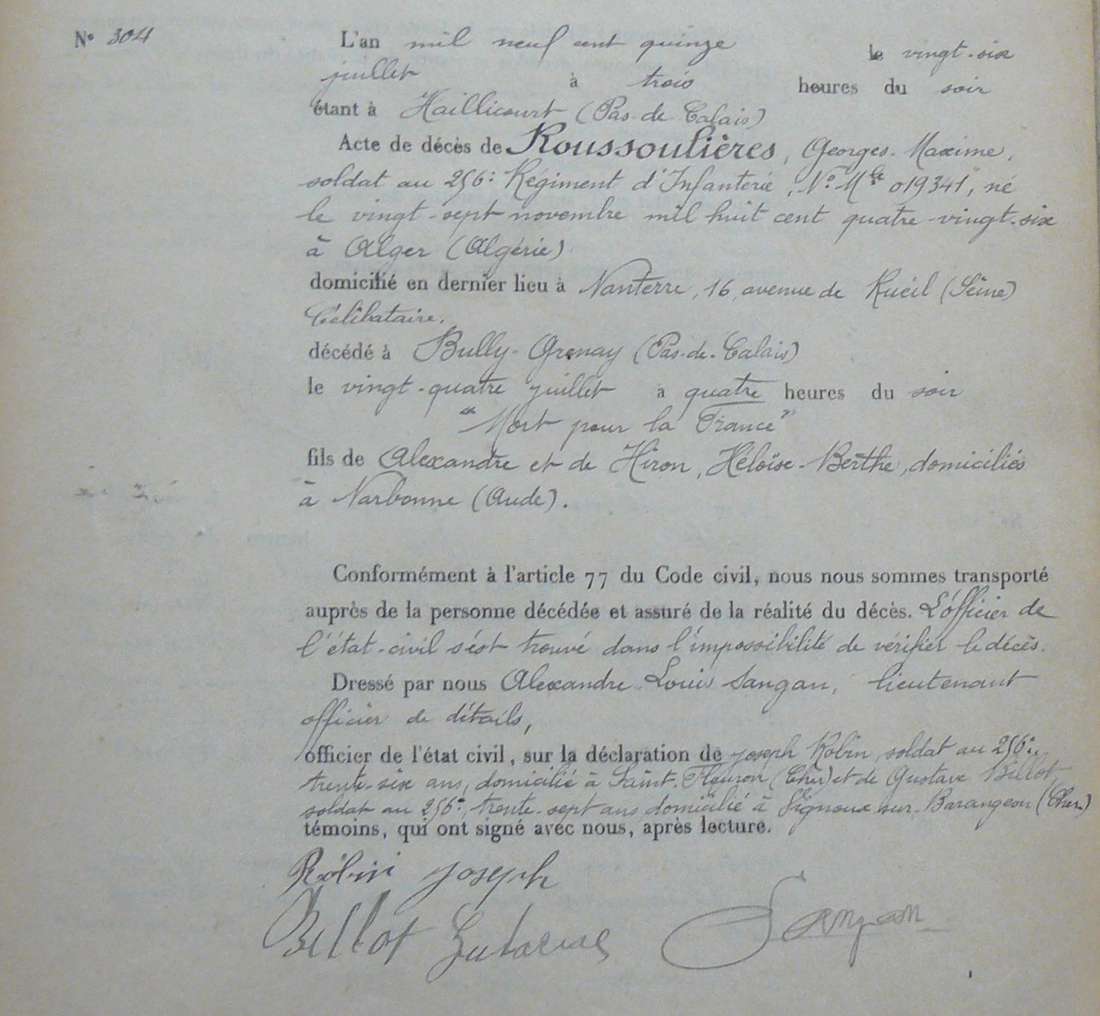 N° 304
L'an mil neuf cent quinze le vingt-six
juillet à trois heures du soir
étant à Haillicourt (Pas-de-Calais)
Acte de décès de Roussoulières, Georges-Maxime,
soldat au 256e Régiment d'Infanterie, N° Mle 019341, né
le vingt-sept novembre mil huit cent quatre-vingt-six
à Alger (Algérie)
domicilié en dernier lieu à Nanterre, 16, avenue de Rueil (Seine)
Célibataire.
décédé à Bully-Grenay (Pas-de-Calais)
le vingt-quatre juillet à quatre heures du soir
"Mort pour la France"
fils de Alexandre et de Hiron, Héloïse-Berthe, domiciliés
à Narbonne (Aude).
Conformément à l'article 77 du Code civil, nous nous sommes transporté
auprès de la personne décédée et assuré de la réalité du décès. L'officier de
l'état-civil s'est trouvé dans l'impossibilité de vérifier le décès.
Dressé par nous Alexandre Louis Sangan, lieutenant
officier de détails,
officier de l'état civil, sur la déclaration de Joseph Robin, soldat au 256e,
trente-six ans, domicilié à Saint-Fleuron (Cher) et de Gustave Billot,
soldat au 256e, trente-sept ans domicilié à Vignoux-sur-Barangeon (Cher)
témoins, qui ont signé avec nous, après lecture.
Robin Joseph
Billot Sangan